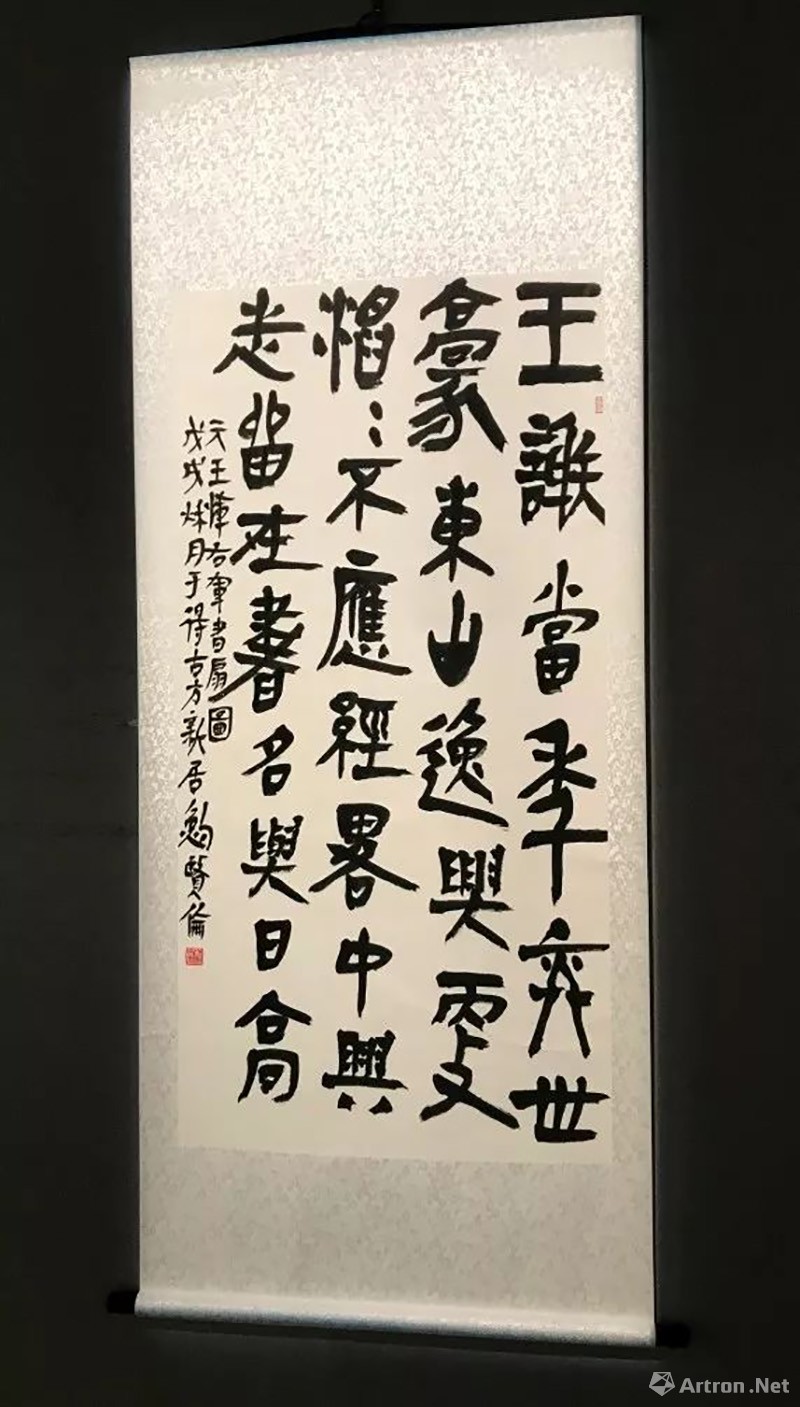 王謝當秊奕世
豪東山逸與
慆〻不應經畧中興
留在書名與日高
元王惲右軍書扇圖
戊戌秋月于得古方新居鮑賢倫
Artron.Net